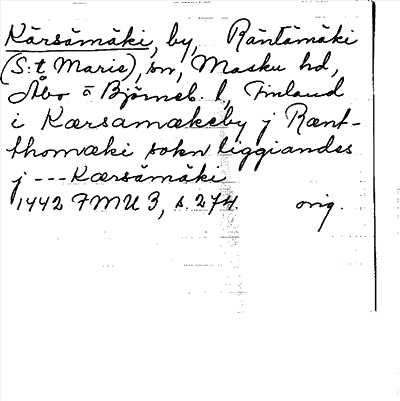 Kärsämäki, by, Räntämäki
(S:t Marie), sn, Masku hd,
Åbo o Björneb. l, Finland
i Kærsamækeby j Rænt-
thomæki sokn liggiandes
j --- Kærsämäki
1442 FMU 3, s 274. orig.